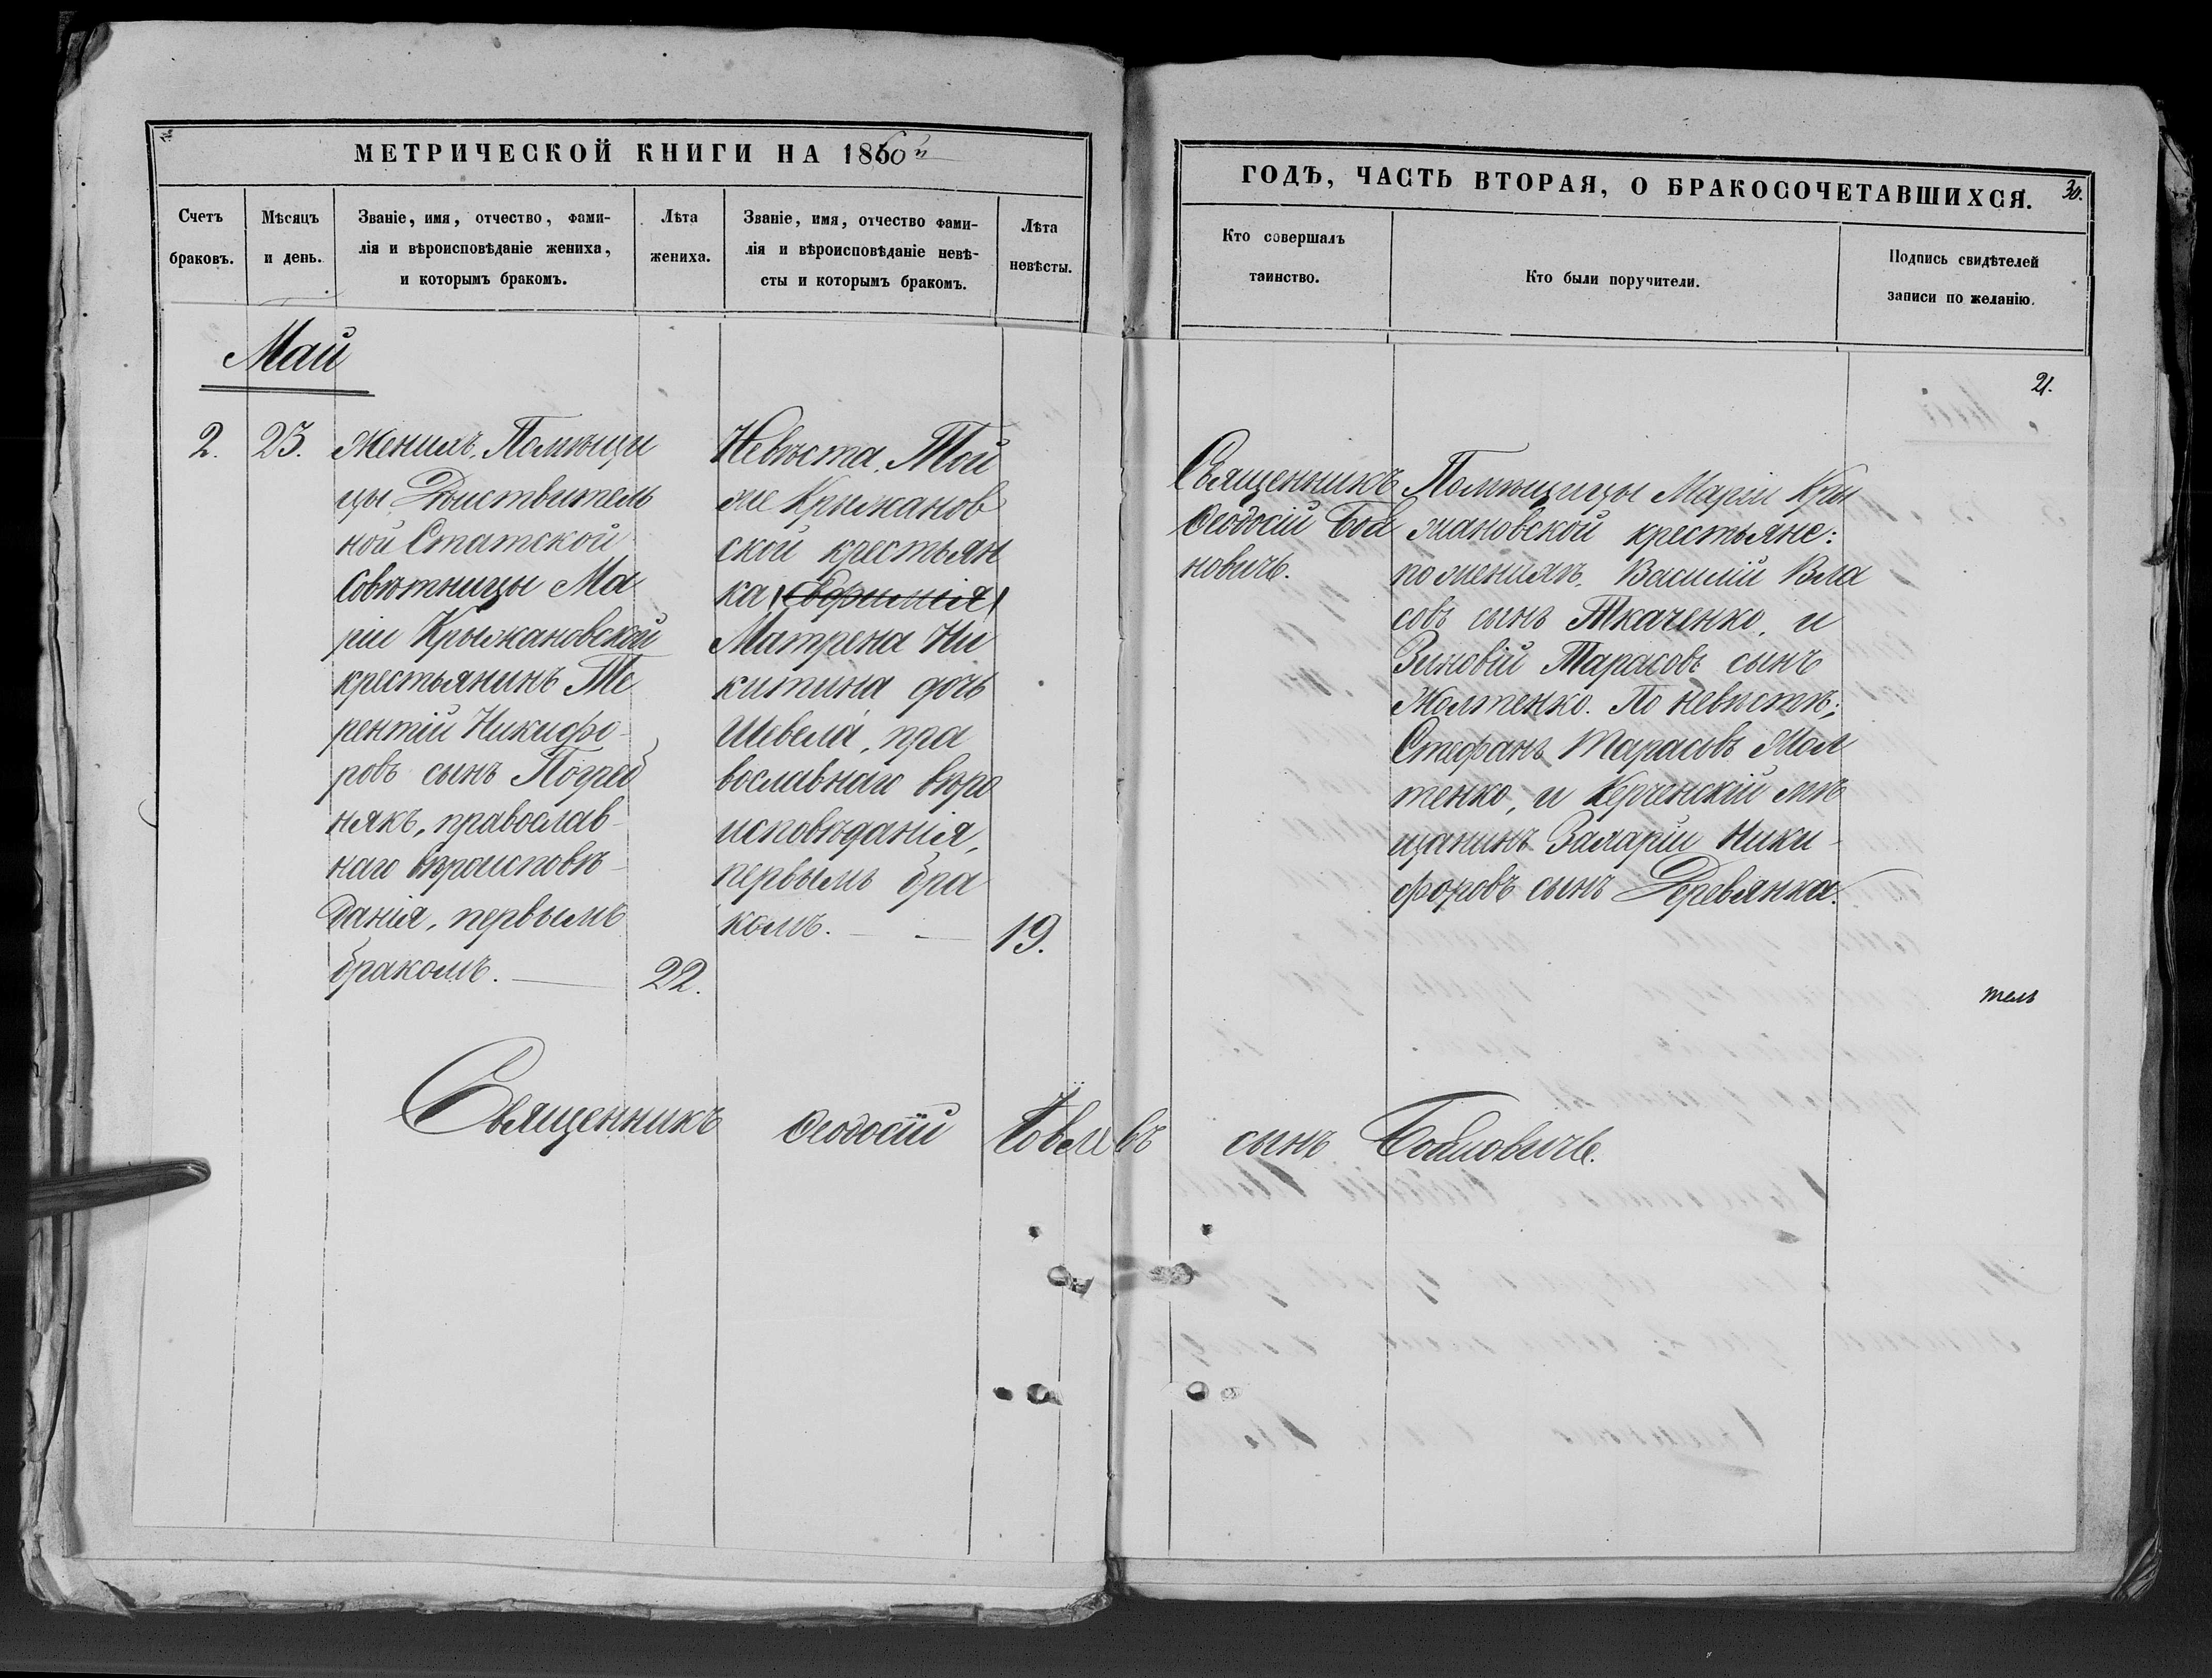 МЕТРИЧЕСКОЙ КНИГИ НА 1860й
ГОДЪ, ЧАСТЬ ВТОРАЯ, О БРАКОСОЧЕТАВШИХСЯ.
30.
Счетъ
браковъ.
Мѣсяцъ
и день.
Званіе, имя, отчество, фами-
лія и вѣроисповѣданіе жениха,
и которымъ бракомъ.
Лѣта
жениха.
Званіе, имя, отчество фами-
лія и вѣроисповѣданіе невѣ-
сты и которымъ бракомъ.
Лѣта
невѣсты.
Кто совершалъ
таинство.
Кто были поручители.
Подпись свидѣтелей
записи по желанію.
Май
21.
2.
23.
Женихъ. Помѣщи
цы Дѣиствитель
ной Статской
Совѣтницы Ма
ріи Крыжановской
крестьянинъ Те
рентій Никифо-
ровъ сынъ Погреб
някъ, православ-
наго вѣроисповѣ-
данія, первымъ
бракомъ.
22.
Невѣста. Той
же Крыжанов
ской крестьян
ка
Матрена Ни
китина дочь
Шевела, пра
вославнаго вѣро
исповѣданія,
первымъ бра
комъ.
19.
Священникъ
Ѳеодосій Бой
новичъ.
Помѣщицы Маріи Кры
жановской крестьяне:
по женихѣ. Василій Вла
совъ сынъ Ткаченко, и
Зиновій Тарасовъ сынъ
Жолтенко. По невѣстѣ:
Стефанъ Тарасовъ Жол
тенко, и Керченскій мѣ
щанинъ Захарій Ники-
форовъ сынъ Деревянка.
тель
Священникъ Ѳеодосій Іовлевъ сынъ Бойновичъ.